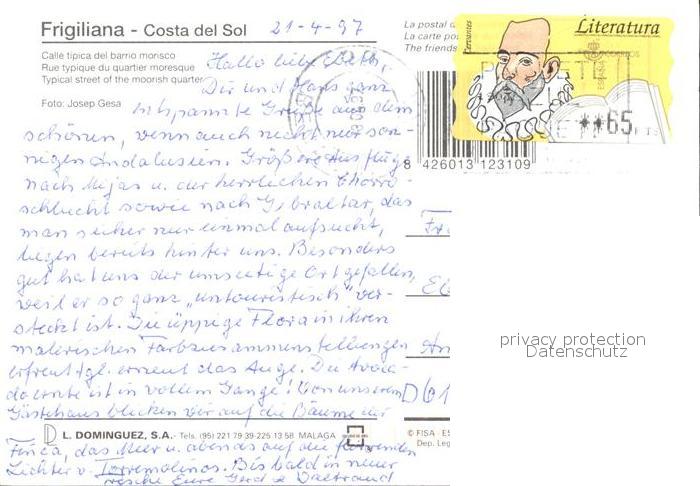 Frigiliana - Costa del Sol
21-4-97
Calle típica del barrio morisco
Rue typique du quartier moresque
Typical street of the moorish quarter
Foto: Josep Gesa
La postal d
La carte pos
The friends
Cervantes
Literatura
CORREOS
ESPAÑA
**65 PTS
8 426013 123109
Hallo liebe
Dir und Hans ganz
entspannte Grüße aus dem
schönen, wenn auch nicht nur son-
nigen Andalusien. Größere Ausflüge
nach Mijas u. der herrlichen Chorro-
schlucht sowie nach Gibraltar, das
man sicher nur einmal aufsucht,
liegen bereits hinter uns. Besonders
gut hat uns der unseitige Ort gefallen,
weil er so ganz „untouristisch" ver-
steckt ist. Die üppige Flora in ihren
malerischen Farbzusammenstellungen
erfreut tgl. erneut das Auge. Die Avoca-
doernte ist in vollem Gange! Von unserem
Gästehaus blicken wir auf die Bäume der
Finca, das Meer u. abends auf die
Lichter v. Torremolinos. Bis bald in neuer
Frische Eure Gerd & Waltraud
Fr
El
An
D 61
L. DOMINGUEZ, S.A. - Tels. (95) 221 79 39-225 13 58 MALAGA
© FISA - ES
Dep. Leg
privacy protection
Datenschutz